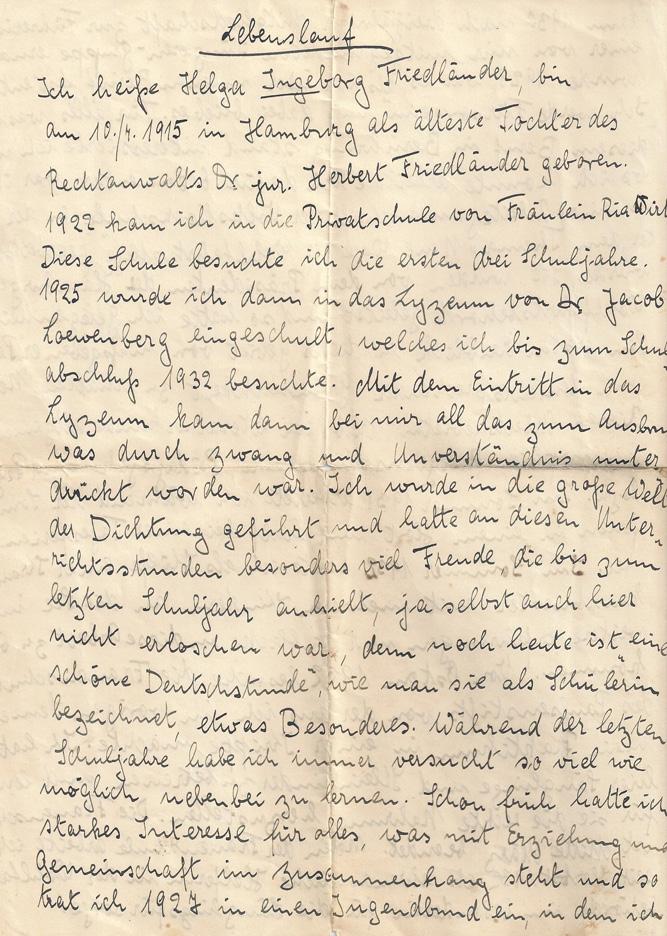 Lebenslauf
Ich heiße Helga Ingeborg Friedländer, bin
am 10./4. 1915 in Hamburg als älteste Tochter des
Rechtanwalts Dr jur. Herbert Friedländer geboren.
1922 kam ich in die Privatschule von Fräulein Ria Wirt
Diese Schule besuchte ich die ersten drei Schuljahre.
1925 wurde ich dann in das Lyzeum von Dr Jacob
Loewenberg eingeschult, welches ich bis zum Schul
abschluß 1932 besuchte. Mit dem Eintritt in das
Lyzeum kam dann bei mir all das zum Ausbru
was durch zwang und Unverständnis unter
drückt worden war. Ich wurde in die große Welt
der Dichtung geführt und hatte an diesen Unter„
richtsstunden besonders viel Freude, die bis zum
letzten Schuljahr anhielt, ja selbst auch hier
nicht erloschen war, denn noch heute ist „eine
schöne Deutschstunde", wie man sie als Schülerin
bezeichnet, etwas Besonderes. Während der letzten
Schuljahre habe ich immer versucht so viel wie
möglich nebenbei zu lernen. Schon früh hatte ich
starkes Interesse für alles, was mit Erziehung und
Gemeinschaft im Zusammenhang steht und so
trat ich 1927 in einen Jugendbund ein, in dem ich